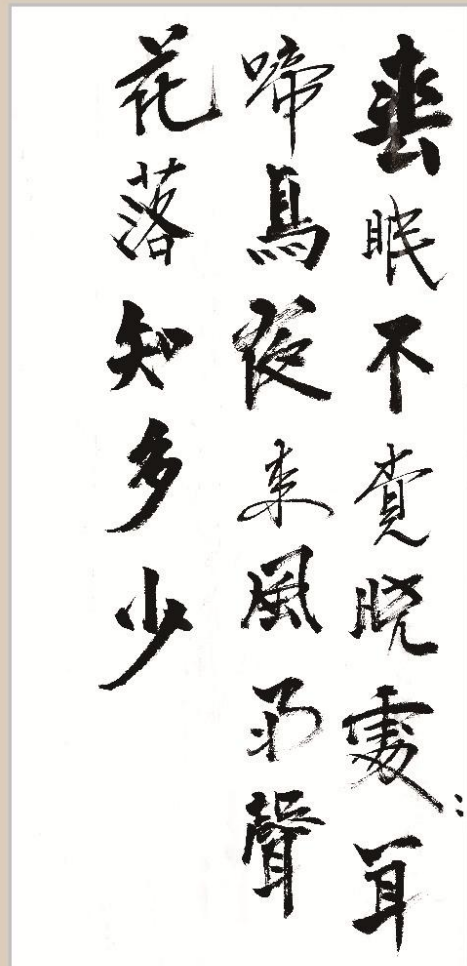 春眠不覺晓處：聞
啼鳥夜来風雨聲
花落知多少